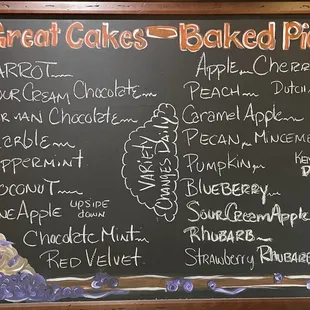 Great Cakes - Baked Pi
ARROT
OUR CREAM Chocolate
R AN Chocolate
arble
PPERMINT
OCONUT
NE APPLE UPSIDE DOWN
Chocolate Mint
RED VELVET
VARIETY CHANGES DAILY
Apple Cherr
PEACH Dutch
Caramel Apple
PECAN MINCEME
Pumpkin Ke
BLUEBERRY
Sour Cream Apple
RHUBARB
Strawberry RHUBARB